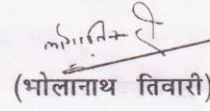 (भोलानाथ तिवारी)